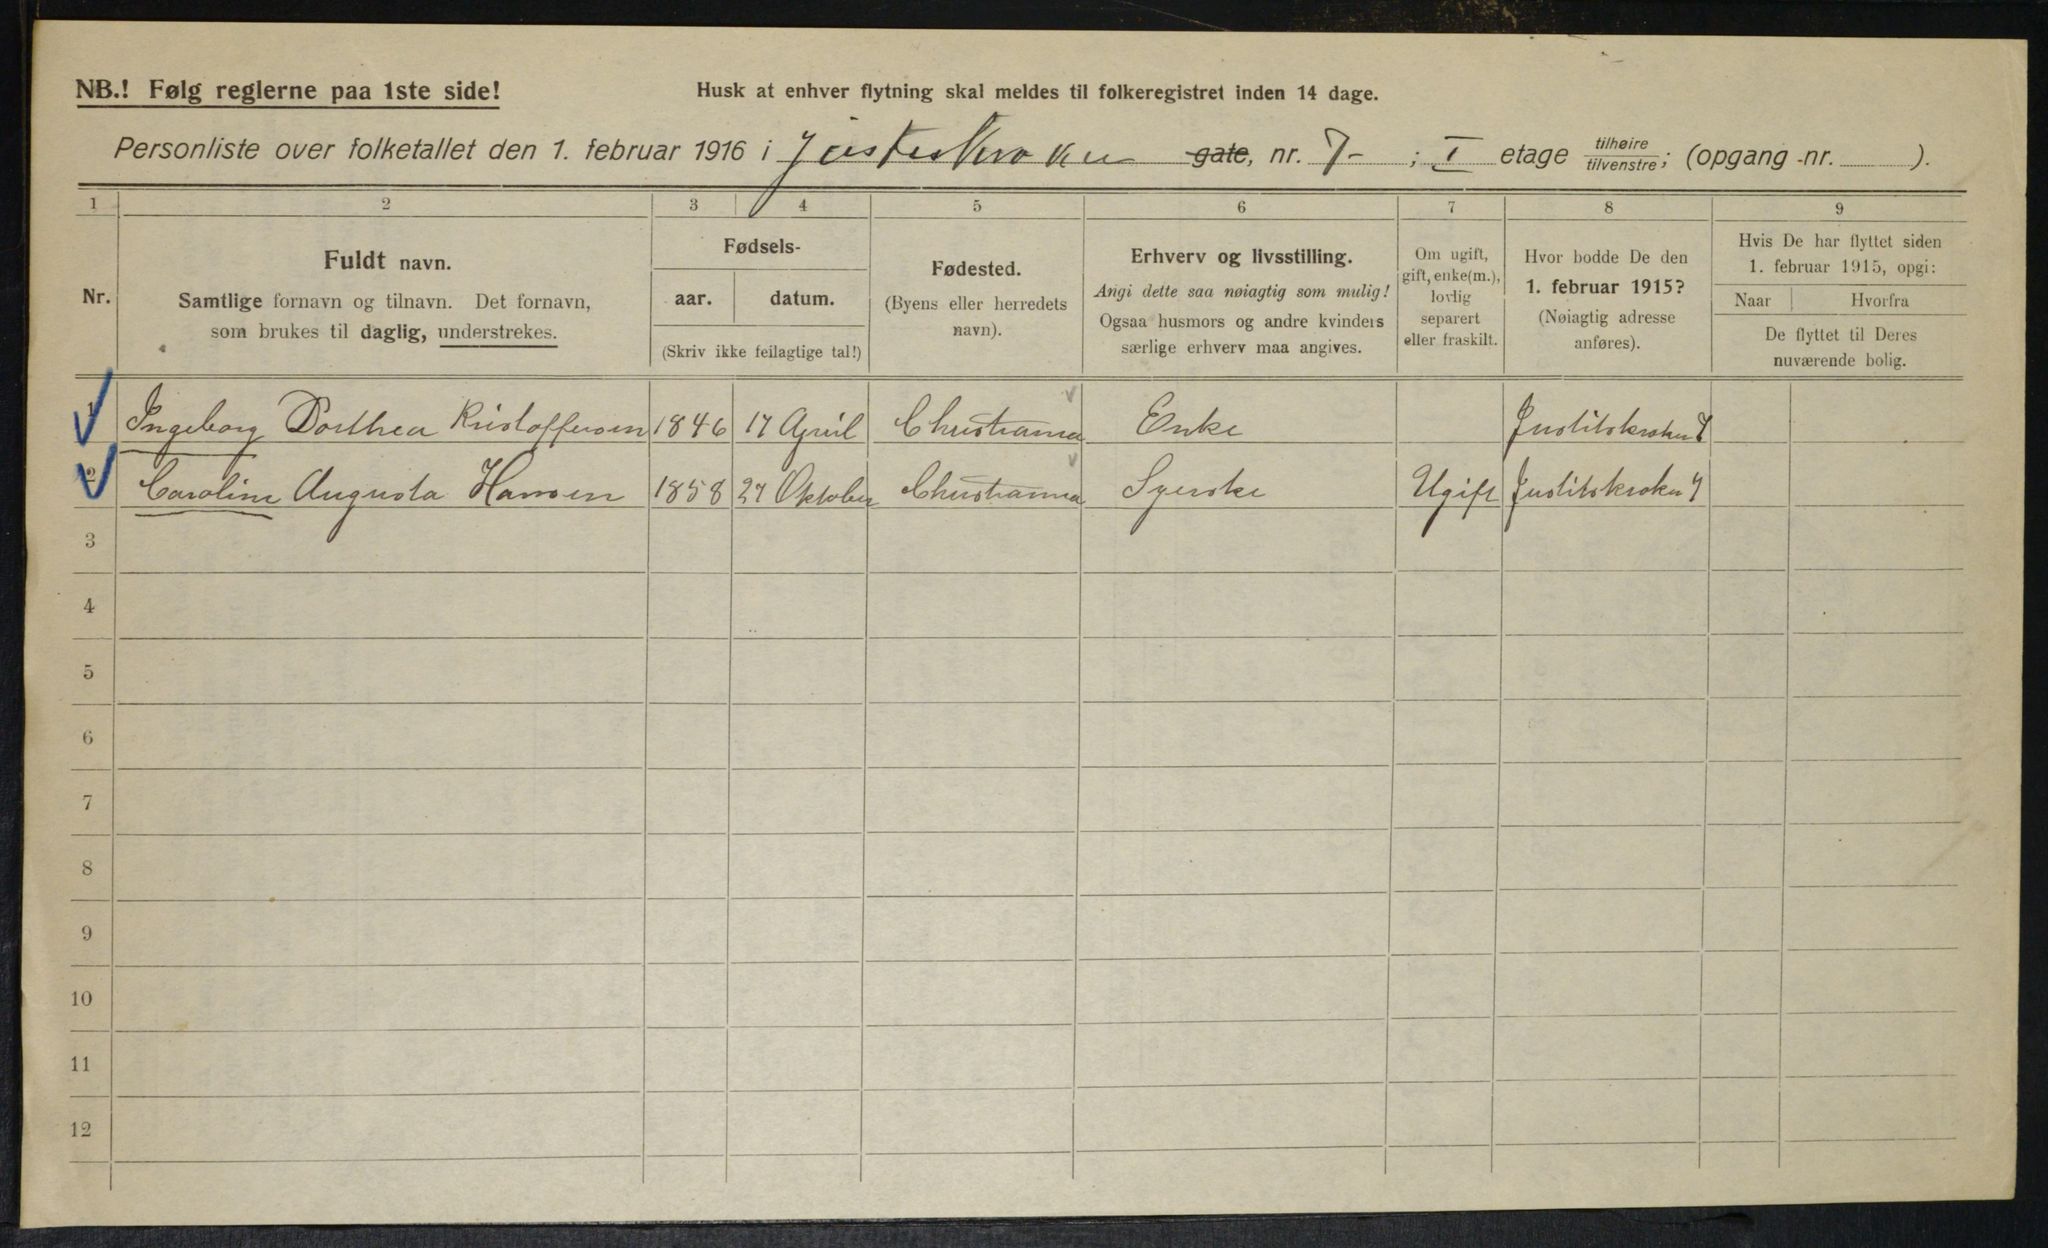 NB.! Følg reglerne paa 1ste side!
Husk at enhver flytning skal meldes til folkeregistret inden 14 dage.
Personliste over folketallet den 1. februar 1916 i Justiskroken gate, nr. 7 ; I etage tilhøire tilvenstre; (opgang nr. ).
1 2 3 4 5 6 7 8 9
Nr.
Fuldt navn.
Samtlige fornavn og tilnavn. Det fornavn,
som brukes til daglig, understrekes.
Fødsels-
aar. datum.
(Skriv ikke feilagtige tal!)
Fødested.
(Byens eller herredets
navn).
Erhverv og livsstilling.
Angi dette saa nøiagtig som mulig!
Ogsaa husmors og andre kvinders
særlige erhverv maa angives.
Om ugift,
gift, enke(m.),
lovlig
separert
eller fraskilt.
Hvor bodde De den
1. februar 1915?
(Nøiagtig adresse
anføres).
Hvis De har flyttet siden
1. februar 1915, opgi:
Naar Hvorfra
De flyttet til Deres
nuværende bolig.
1 Ingeborg Dorthea Kristoffersen 1846 17 April Christiania Enke Justitskroken 7
2 Caroline Augusta Hansen 1858 27 Oktober Christiania Syerske Ugift Justitskroken 7
3
4
5
6
7
8
9
10
11
12